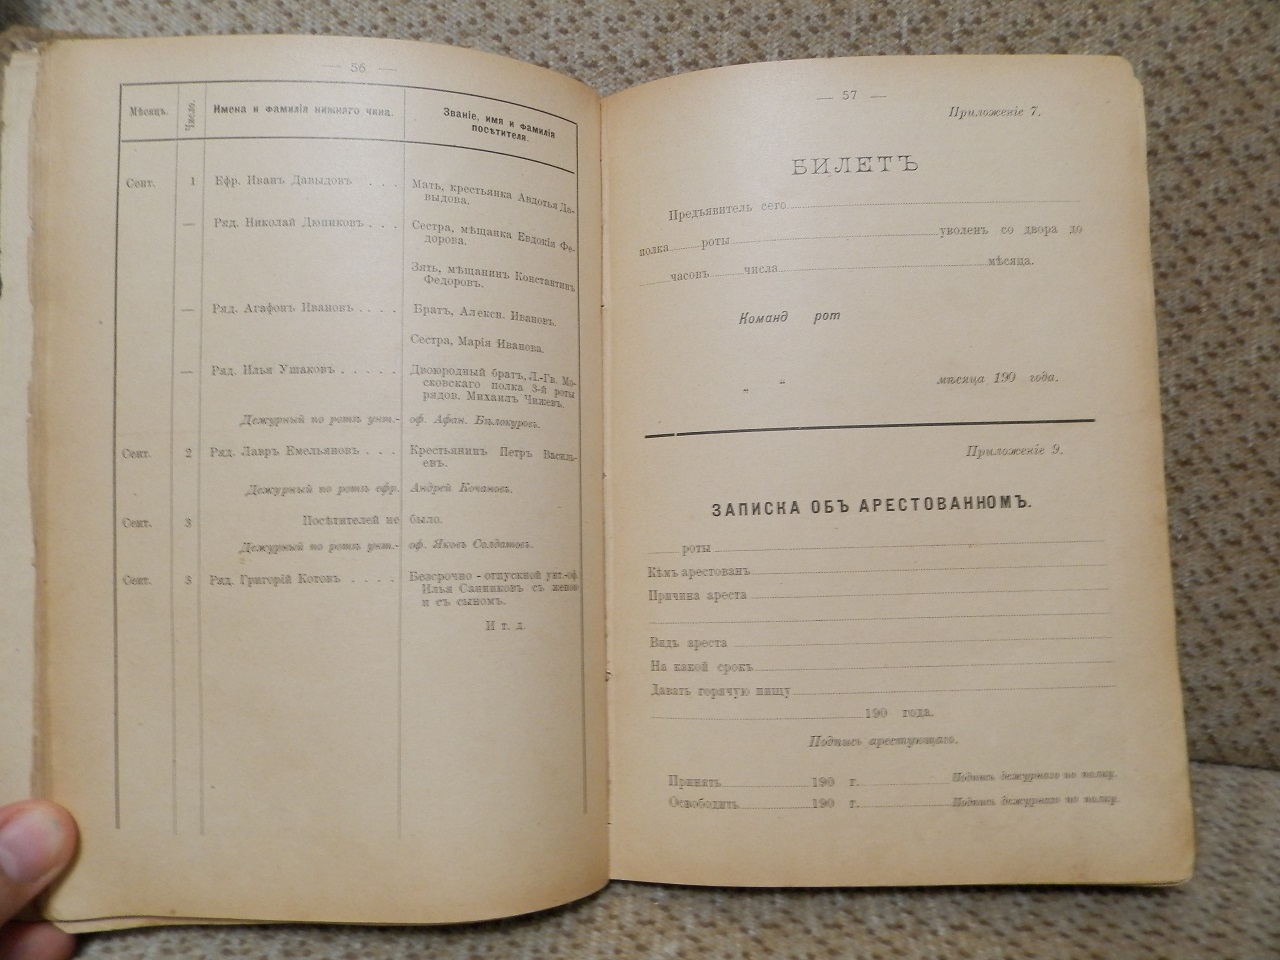 — 56 —
Мѣсяцъ.
Число.
Имена и фамилія нижняго чина.
Званіе, имя и фамилія
посѣтителя.
Сент. 1 Ефр. Иванъ Давыдовъ . . . Мать, крестьянка Авдотья Да-
выдова.
— Ряд. Николай Дюпиковъ . . . Сестра, мѣщанка Евдокія Фе-
дорова.
Зять, мѣщанинъ Константинъ
Федоровъ.
— Ряд. Агафонъ Ивановъ . . . . Братъ, Алексн. Ивановъ.
Сестра, Марія Иванова.
— Ряд. Илья Ушаковъ . . . . . Двоюродный братъ, Л.-Гв. Мо-
сковскаго полка 3-й роты
рядов. Михаилъ Чижевъ.
Дежурный по ротѣ унт.-оф. Афан. Бѣлокуровъ.
Сент. 2 Ряд. Лавръ Емельяновъ . . . Крестьянинъ Петръ Василь-
евъ.
Дежурный по ротѣ ефр. Андрей Кочановъ.
Сент. 3 Посѣтителей не было.
Дежурный по ротѣ унт.-оф. Яковъ Солдатовъ.
Сент. 3 Ряд. Григорій Котовъ . . . . Безсрочно-отпускной унт.-оф.
Илья Санниковъ съ женою
и съ сыномъ.
И т. д.
— 57 —
Приложеніе 7.
БИЛЕТЪ
Предъявитель сего
полка роты уволенъ со двора до
часовъ числа мѣсяца.
Команд рот
„ “ мѣсяца 190 года.
Приложеніе 9.
ЗАПИСКА ОБЪ АРЕСТОВАННОМЪ.
роты
Кѣмъ арестованъ
Причина ареста
Видъ ареста
На какой срокъ
Давать горячую пищу
190 года.
Подпись арестующаго.
Принять 190 г. Подпись дежурнаго по полку.
Освободить 190 г. Подпись дежурнаго по полку.